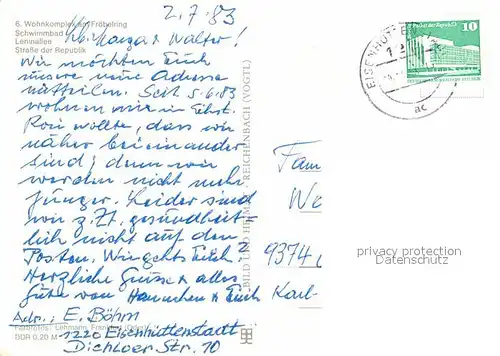 6. Wohnkomplex am Fröbelring
Schwimmbad
Leninallee
Straße der Republik
2.7.83
Walter!
Wir möchten Euch
unsere neue Adresse
mitteilen. Seit 5.6.83
wohnen wir in Ehst.
wollte, dass wir
näher beieinander
sind; denn wir
werden nicht mehr
jünger. Leider sind
wir z. Zt. gesundheit-
lich nicht auf dem
Posten. Wie geht's Euch?
Herzliche Grüsse + alles
Gute von Hannchen + Erich
Adr.: E. Böhm
1220 Eisenhüttenstadt
Dichloer Str. 10
Farbfotos: Lehmann, Frankfurt (Oder)
DDR 0,20 M
BILD UND HEIMAT · REICHENBACH (VOGTL)
EISENHÜTTEN
ac
10
Fam
We
9374
Karl-
privacy protection
Datenschutz